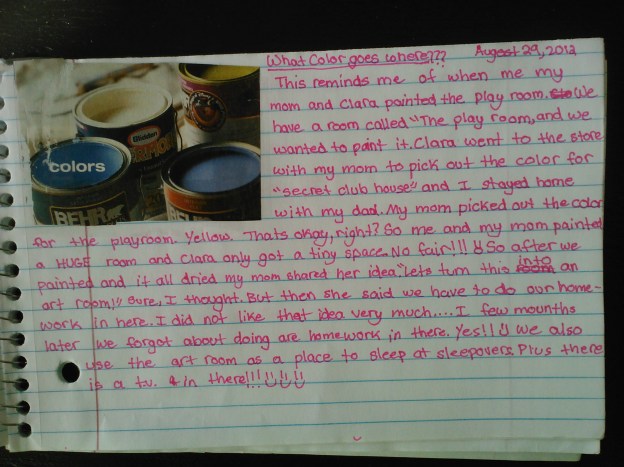 What Color goes where??? August 29, 2012
This reminds me of when me my
mom and Clara painted the play room. We
have a room called "The play room, and we
wanted to paint it. Clara went to the store
with my mom to pick out the color for
"secret club house" and I stayed home
with my dad. My mom picked out the color
for the playroom. Yellow. Thats okay, right? So me and my mom painted
a HUGE room and Clara only got a tiny space. No fair!!! So after we
painted and it all dried my mom shared her idea "Lets turn this into an
art room!" Sure, I thought. But then she said we have to do our home-
work in here.. I did not like that idea very much.... I few mounths
later we forgot about doing are homework in there. Yes!! we also
use the art room as a place to sleep at sleepovers. Plus there
is a t.v. in there!!!
colors
BEHR
Glidden
BEHR